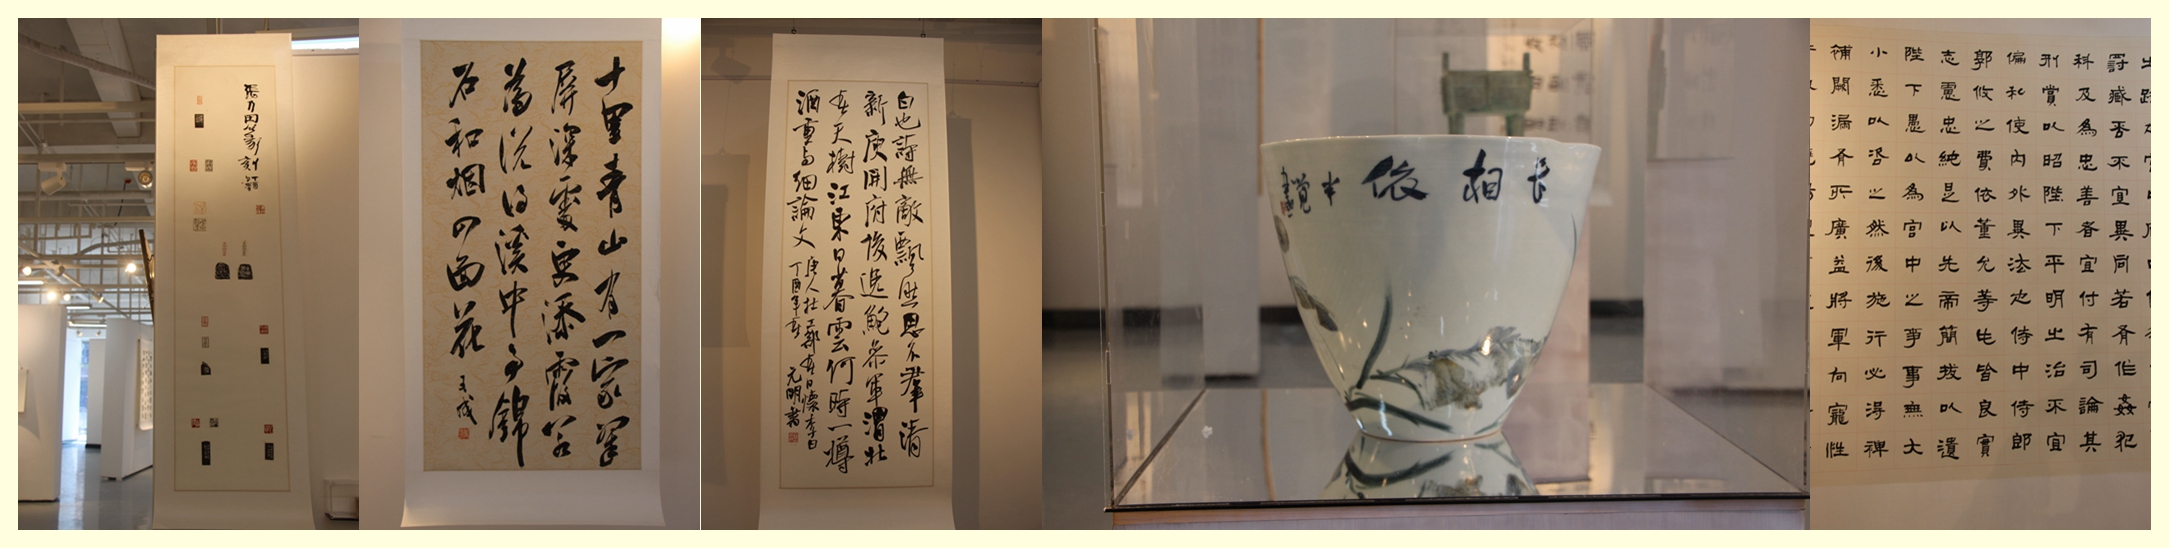 張力田篆刻題
十里青山有一家翠
屏深處更添霞若
為說得溪中事錦
石和烟四面花
白也詩無敵飄然思不群清
新庾開府俊逸鮑參軍渭北
春天樹江東日暮雲何時一樽
酒重與細論文 唐人杜工部春日憶李白
丁酉年春 元明書
長相依
罸臧否不宜異同若有作姦犯
科及為忠善者宜付有司論其
刑賞以昭陛下平明之治不宜
偏私使內外異法也侍中侍郎
郭攸之費依董允等此皆良實
志慮忠純是以先帝簡拔以遺
陛下愚以為宮中之事事無大
小悉以咨之然後施行必得裨
補闕漏有所廣益將軍向寵性